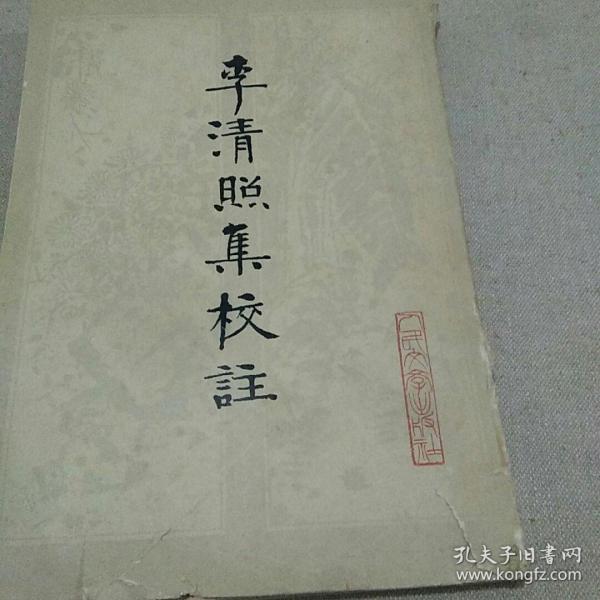 李清照集校註
人民文学出版社
孔夫子旧書网
www.kongfz.com